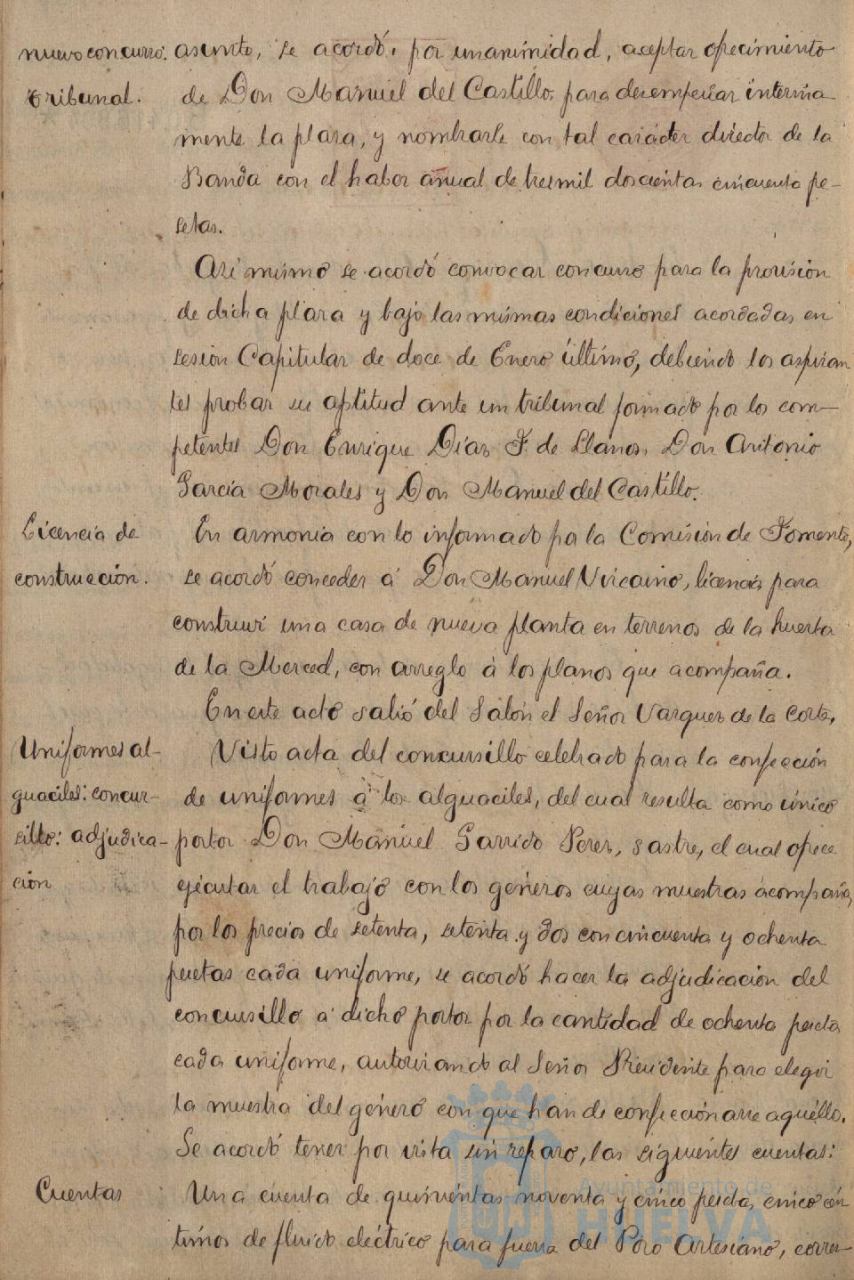 nuevo concurso.
tribunal.
asunto, se acordó, por unanimidad, aceptar ofrecimiento
de Don Manuel del Castillo, para desempeñar interina
mente la plaza, y nombrarle con tal carácter director de la
Banda con el haber anual de tresmil doscientas cincuenta pe-
setas.
Asi mismo se acordó convocar concurso para la provisión
de dicha plaza y bajo las mismas condiciones acordadas en
sesión Capitular de doce de Enero último, debiendo los aspiran
tes probar su aptitud ante un tribunal formado por los com-
petentes Don Enrique Díaz F. de Llanos, Don Antonio
García Morales y Don Manuel del Castillo.
Licencia de
construcción.
En armonía con lo informado por la Comisión de Fomento,
se acordó conceder á Don Manuel Vizcaino, licencia para
construir una casa de nueva planta en terrenos de la huerta
de la Merced, con arreglo á los planos que acompaña.
En este acto salió del Salón el Señor Vazquez de la Corte,
Uniformes al-
guaciles: concur-
sillo: adjudica-
ción
Visto acta del concursillo celebrado para la confección
de uniformes á los alguaciles, del cual resulta como único
portor Don Manuel Garrido Perez, sastre, el cual ofrece
ejecutar el trabajo con los géneros cuyas muestras acompaña,
por los precios de setenta, setenta y dos con cincuenta y ochenta
pesetas cada uniforme, se acordó hacer la adjudicación del
concursillo á dicho portor por la cantidad de ochenta pesetas
cada uniforme, autorizando al Señor Presidente para elegir
la muestra del género con que han de confeccionarse aquéllos.
Se acordó tener por vista sin reparo, las siguientes cuentas:
Cuentas
Una cuenta de quinientas noventa y cinco pesetas, cinco cén
timos de fluido eléctrico para fuerza del Pozo Artesiano, corres-
Ayuntamiento de
HUELVA